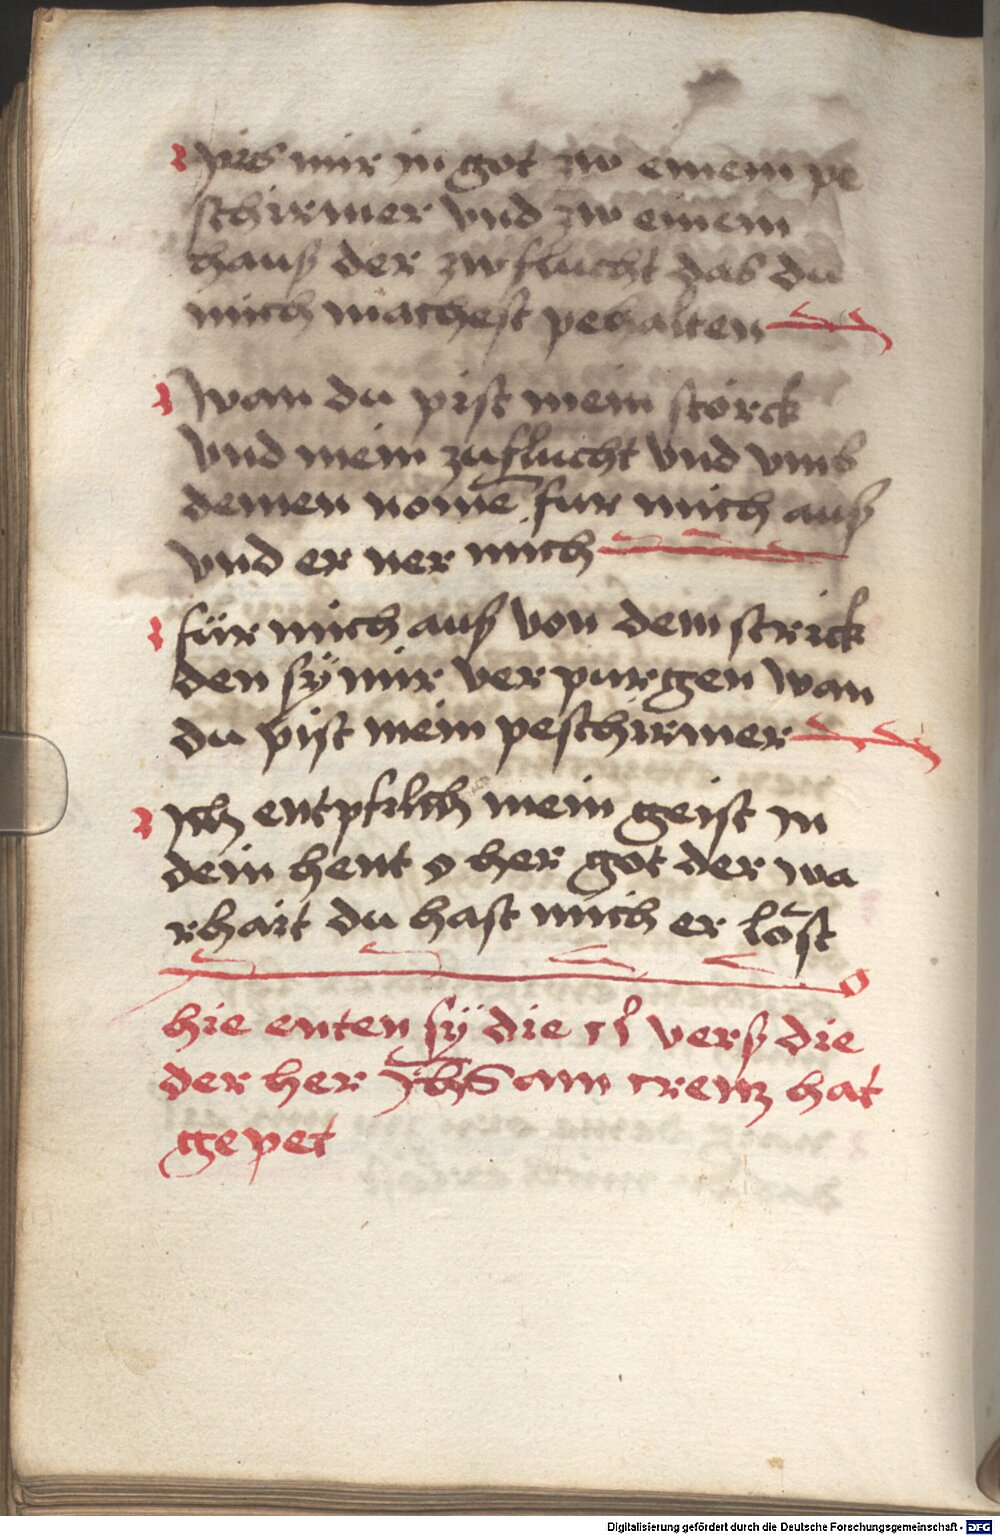 pis mir in got zw einem pe
schirmer vnd zw einem
hauß der zwflucht das du
mich machest pehalten
wan du pist mein störck
vnd mein zuflucht vnd vmb
deinen nomē für mich auß
vnd er ner mich
für mich auß von dem strick
den sÿ mir ver purgen wan
du pist mein peschirmer
Ich entpfilch mein geist in
dein hent o her got der wa
rhait du hast mich er löst
hie enten sÿ die verß die
der her Jhs am creutz hat
gepet
Digitalisierung gefördert durch die Deutsche Forschungsgemeinschaft - DFG